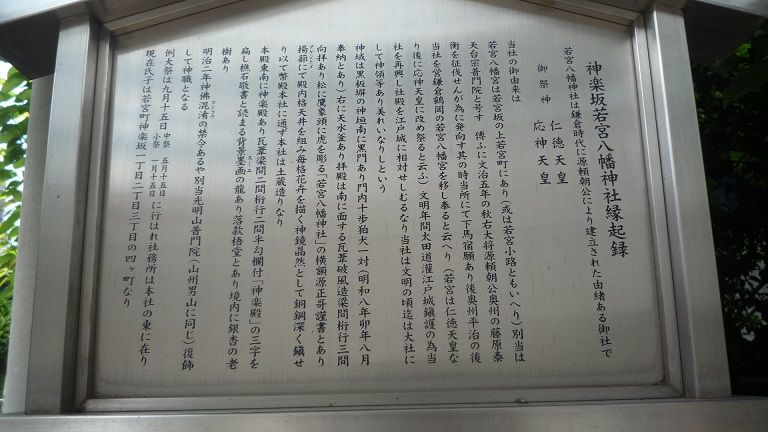 神楽坂若宮八幡神社縁起録
若宮八幡神社は鎌倉時代に源頼朝公により建立された由緒ある御社で
御祭神 仁徳天皇
応神天皇
当社の御由来は
若宮八幡宮は若宮坂の上若宮町にあり(或は若宮小路ともいへり)別当は
天台宗普門院と号す 傳ふに文治五年の秋右大将源頼朝公奥州の藤原泰
衡を征伐せんが為に発向す其の時当所にて下馬宿願あり後奥州平治の後
当社を営鎌倉鶴岡の若宮八幡宮を移し奉ると云へり(若宮は仁徳天皇な
り後に応神天皇に改め祭ると云ふ)文明年間太田道灌江戸城鎮護の為当
社を再興し社殿を江戸城に相対せしむるなり当社は文明の頃迄は大社に
して神領等あり美れいなりしという
神域は黒板塀の神垣南に黒門あり門内十歩狛犬一対(明和八年卯年八月
奉納とあり)右に天水釜あり拝殿は南に面する瓦葺破風造梁間桁行三間
向拝あり松に鷹象頭に虎を彫る「若宮八幡神社」の横額源正哥謹書とあり
揚蔀にて殿内格天井を組み毎格花卉を描く神鏡晶然として銅鋼深く鎮せ
り以て幣殿本社に通ず本社は土蔵造りなり
本殿東南に神楽殿あり瓦葺梁間二間桁行二間半勾欄付「神楽殿」の三字を
扁し樵石敬書と読まる背景墨画の龍あり落款梧堂とあり境内に銀杏の老
樹あり
明治二年神佛混淆の禁令あるや別当光明山普門院(山州男山に同じ)復飾
して神職となる
例大祭は九月十五日 中祭 五月十五日
小祭 一月十五日 に行はれ社務所は本社の東に在り
現在氏子は若宮町神楽坂一丁目二丁目三丁目の四ヶ町なり